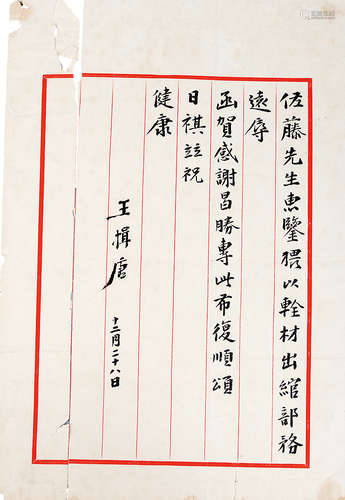 佐藤先生惠鑒猥以輇材出綰部務
遠辱
函賀感謝曷勝專此布復順頌
日祺並祝
健康
王揖唐
十二月二十八日